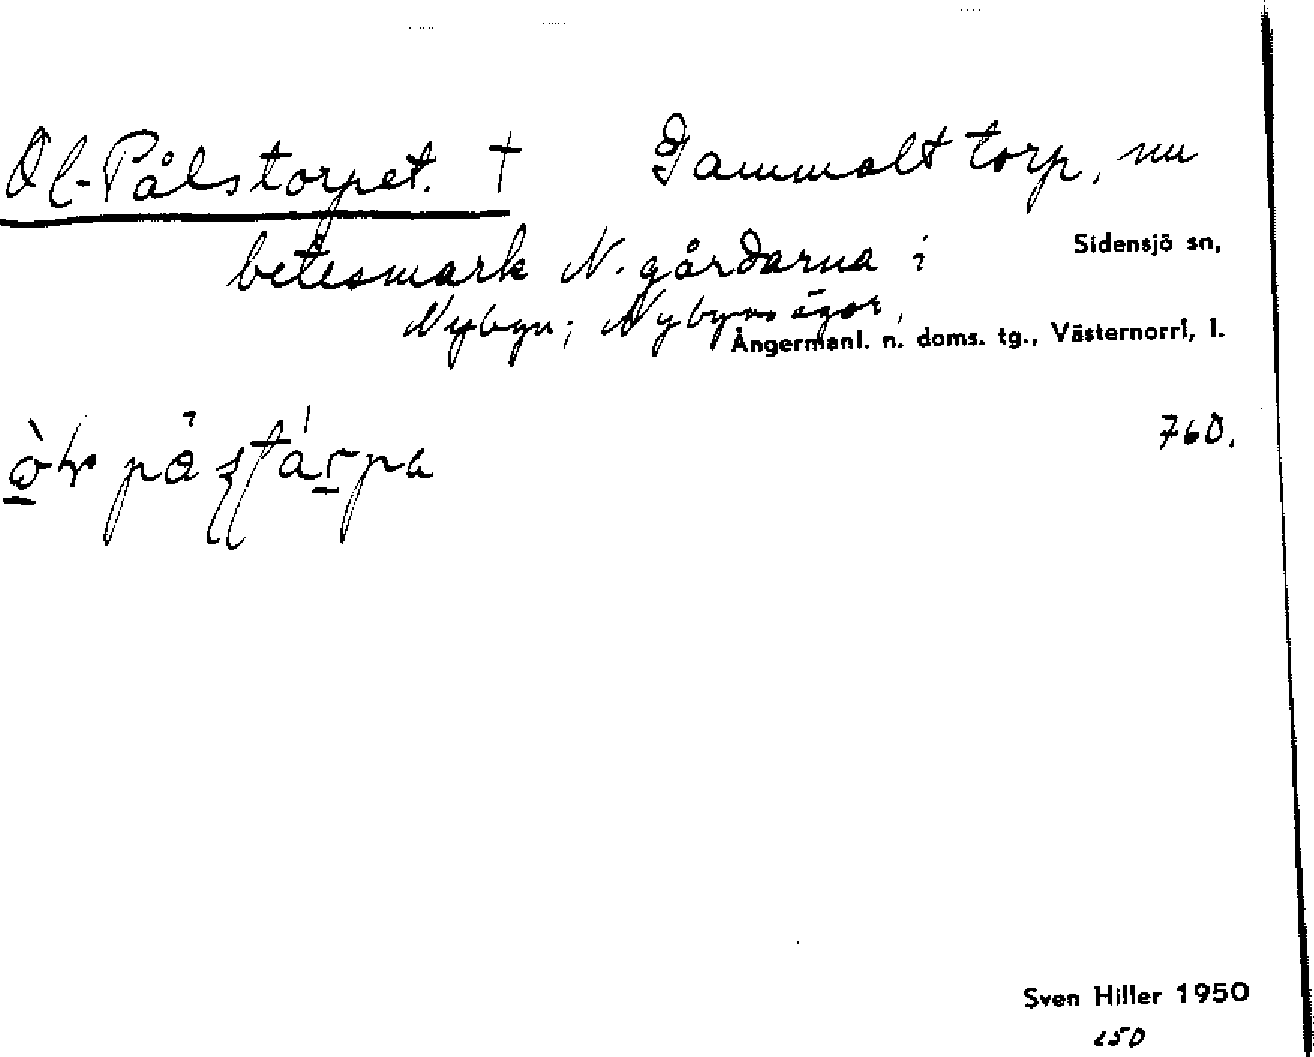 Ol-Pålstorpet. † Gammalt torp, nu
betesmark N. gårdarna i
Sidensjö sn,
Nybyn; Nybyns ägor.
Ångermanl. n. doms. tg., Västernorrl, l.
760.
Sven Hiller 1950
250